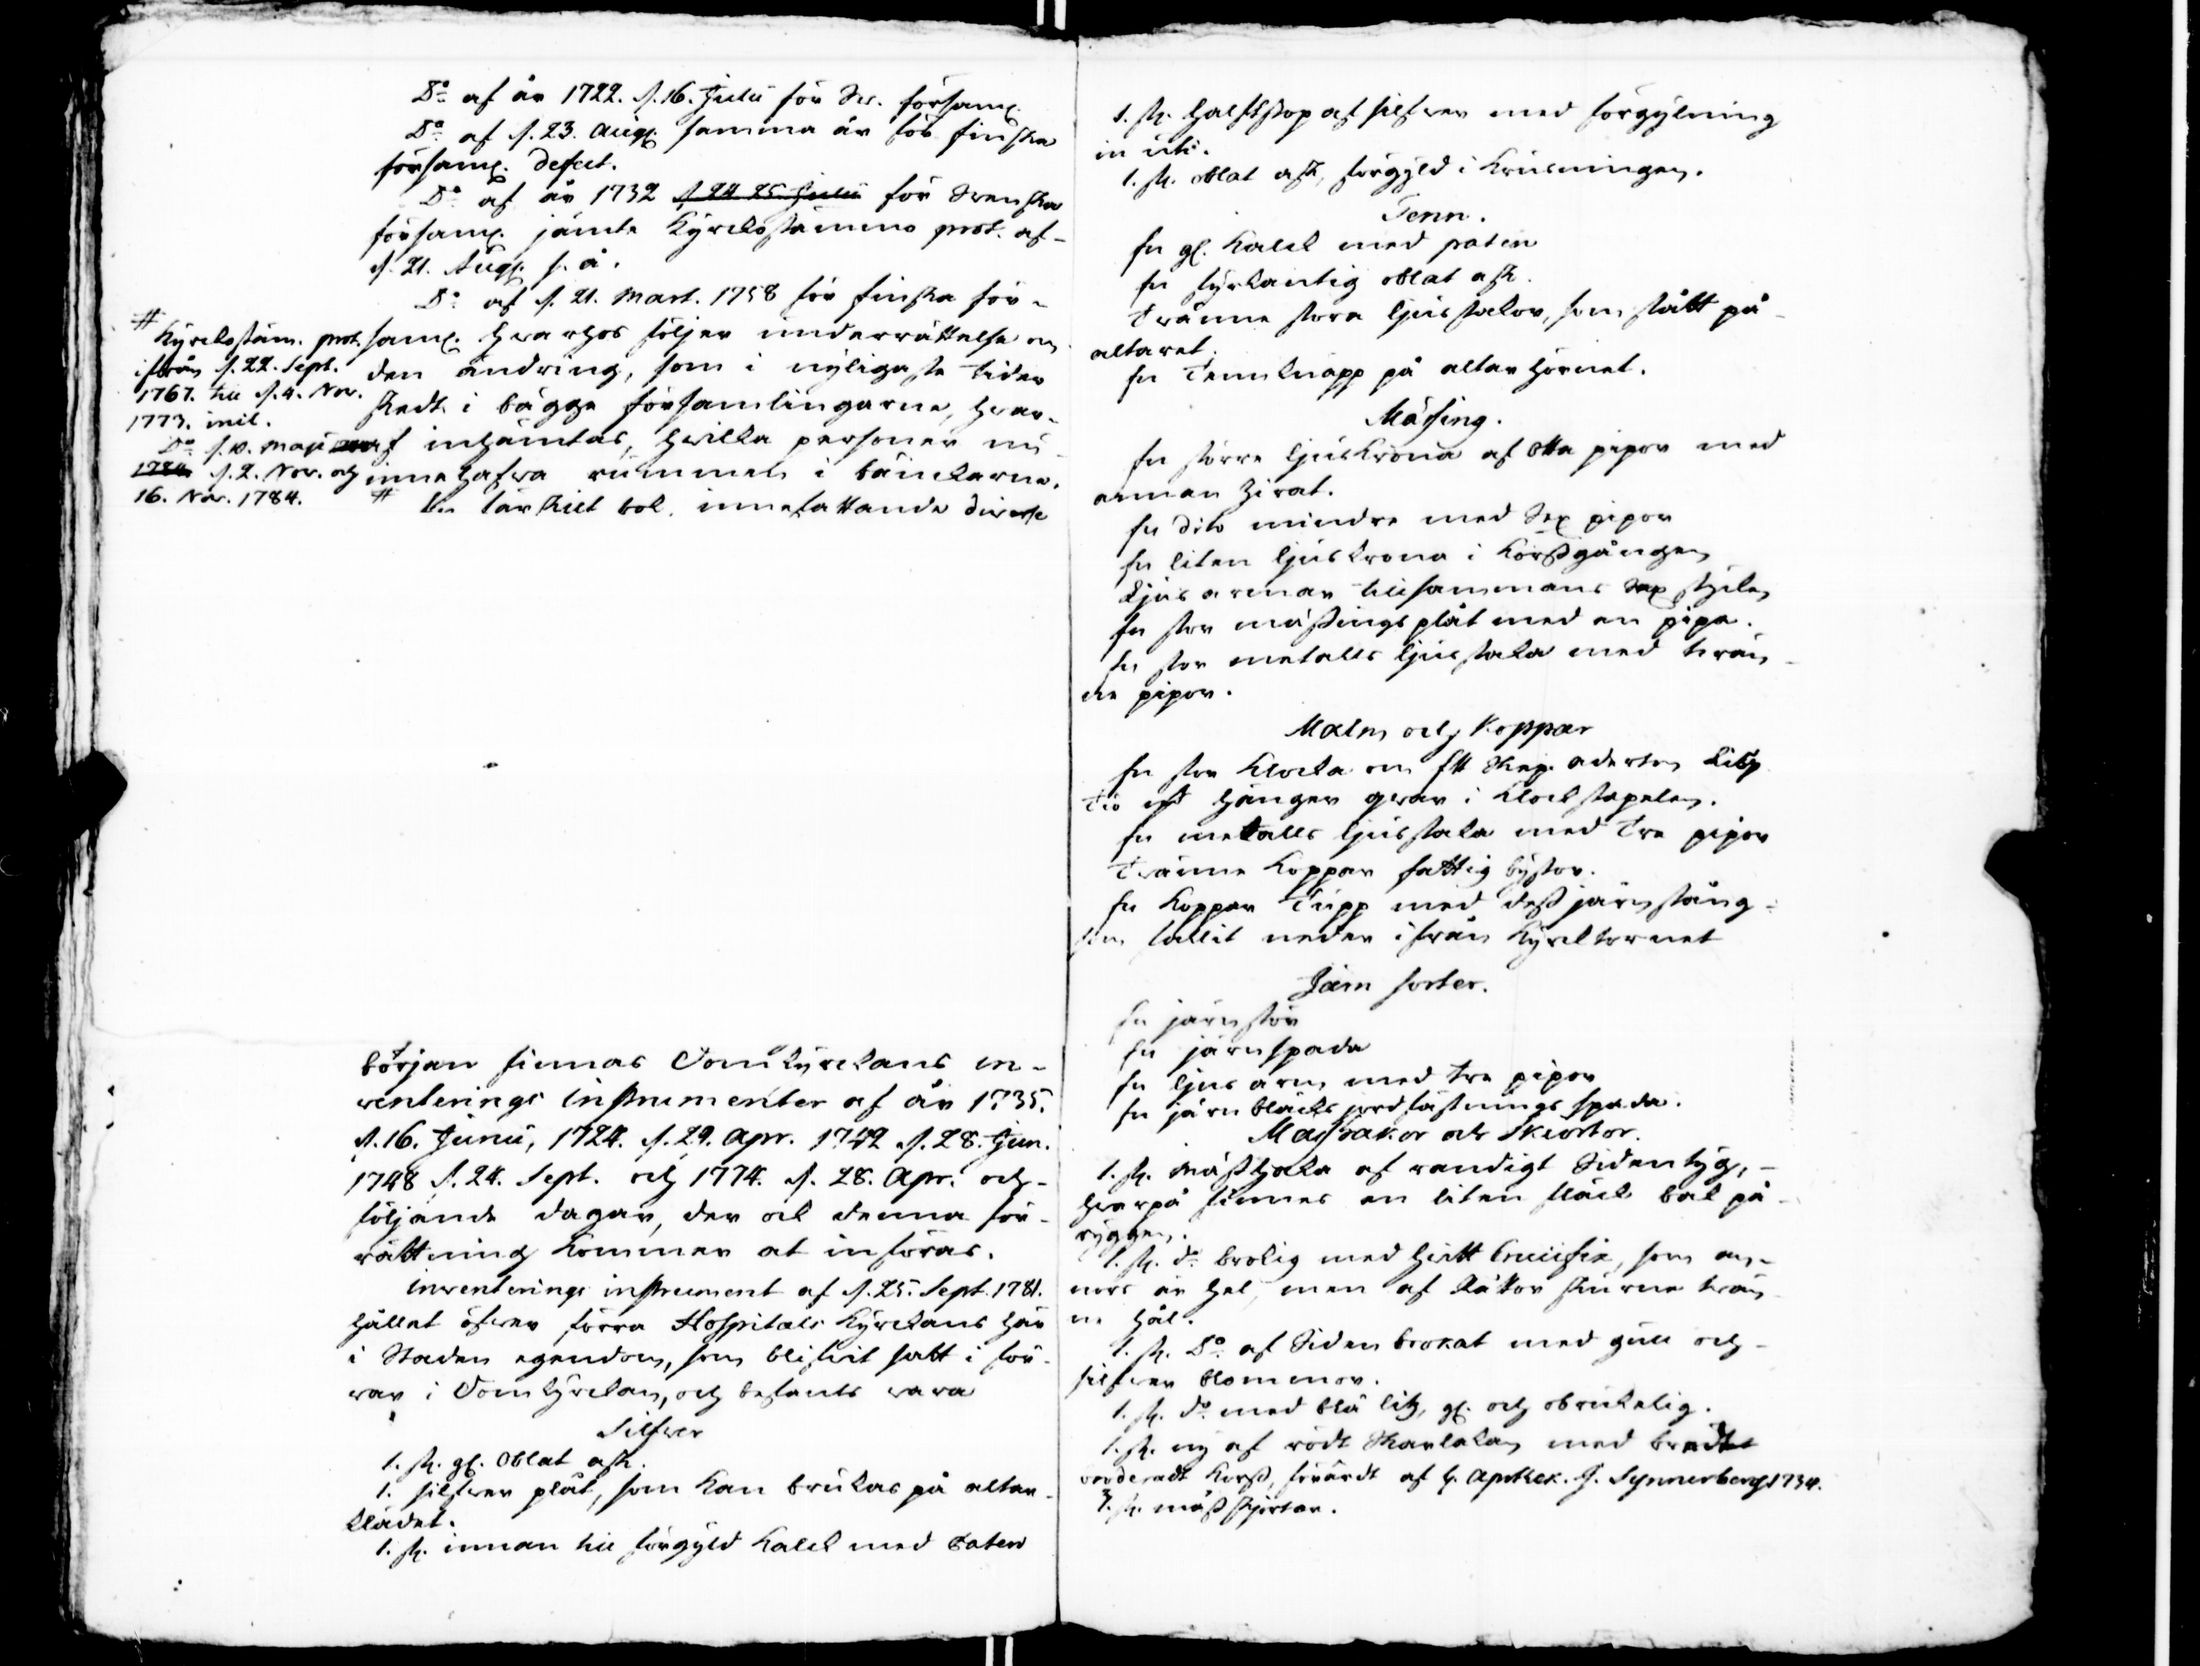 Do af år 1722. d. 16. Julii för Sv. församl.
Do af d. 23. Aug. samma år för finska
församl. defect.
Do af år 1732 d. 24. 25. Julii för Svenska
församl. jämte Kyrckostämmo prot. af
d. 21. Aug. s. å.
Do af d. 21. Mart. 1758 för finska för-
saml. hvarhos följer underrättelse om
den ändring, som i nyligaste tider
skedt i bägge församlingarne, hvar-
af inhämtas, hvilka personer nu
innehafva rummen i bänckarne.
# En särskilt bok, innefattande diverse
# Kyrckostäm. prot.
ifrån d. 22. Sept.
1767. till d. 4. Nov.
1773. incl.
Do d. 10. Maji
1784. d. 2. Nov. och
16. Nov. 1784.
början finnas Domkyrckans in-
venterings instrumenter af år 1735.
d. 16. Junii, 1724. d. 29. Apr. 1742 d. 28. Jun.
1748 d. 24. Sept. och 1774. d. 28. Apr. och
följande dagar, der ock denna för-
rättning kommer at införas.
Inventerings instrument af d. 25. Sept. 1781.
hållet öfver förra Hospitals Kyrckans här
i Staden egendom, som blifvit satt i för-
var i Domkyrckan, och befants vara
Silfver
1. st. gl. Oblat ask.
1. silfver plåt, som kan brukas på altar
klädet.
1. st. innan till förgyld Kalck med Paten
1. st. halfstop af silfver med förgylning
in uti.
1. st. oblat ask, förgyld i Krusningen.
Tenn.
En gl. Kalck med paten
En fyrkantig oblat ask.
Tvänne stora ljusstakor, som stått på
altaret.
En Tennknapp på altar hörnet.
Mässing.
En större ljuskrona af Otta pipor med
annan Zirat.
En dito mindre med Sex pipor
En liten ljuskrona i Korssgången
Ljus armar tillsammans Sex stycken
En stor mässings plåt med en pipa.
En stor metalls ljusstaka med tvän-
ne pipor.
Malm och Koppar
En stor Klocka om Ett Skep. aderton Lisp
Tio hänger qvar i Klockstapelen.
En metalls ljusstaka med Tre pipor
Tvänne Koppar fattig bössor.
En Koppar Tupp med dess järnstång
som fallit neder ifrån Kyrcktornet
Järn sorter.
En järnstör
En järnspada
En ljus arm med tre pipor
En järnbläcks jordfästnings spada.
Mässhakor och Skiortor.
1. st. Mässhaka af randigt Sidentyg,
hvarpå finnes en liten fläck bak på
ryggen.
1. st. do brokig med hvitt Crucifix, som an-
nors är hel, men af Råttor skurne tvän-
ne hål.
1. st. Do af Siden brokat med gull och
silfver blommor.
1. st. do med blå lits, gl. och obrukelig.
1. st. ny af rödt Skarlakan med
broderadt Korss, förärdt af H. Apothek. J. Synnerberg 1734.
3. st. mässkjortor.